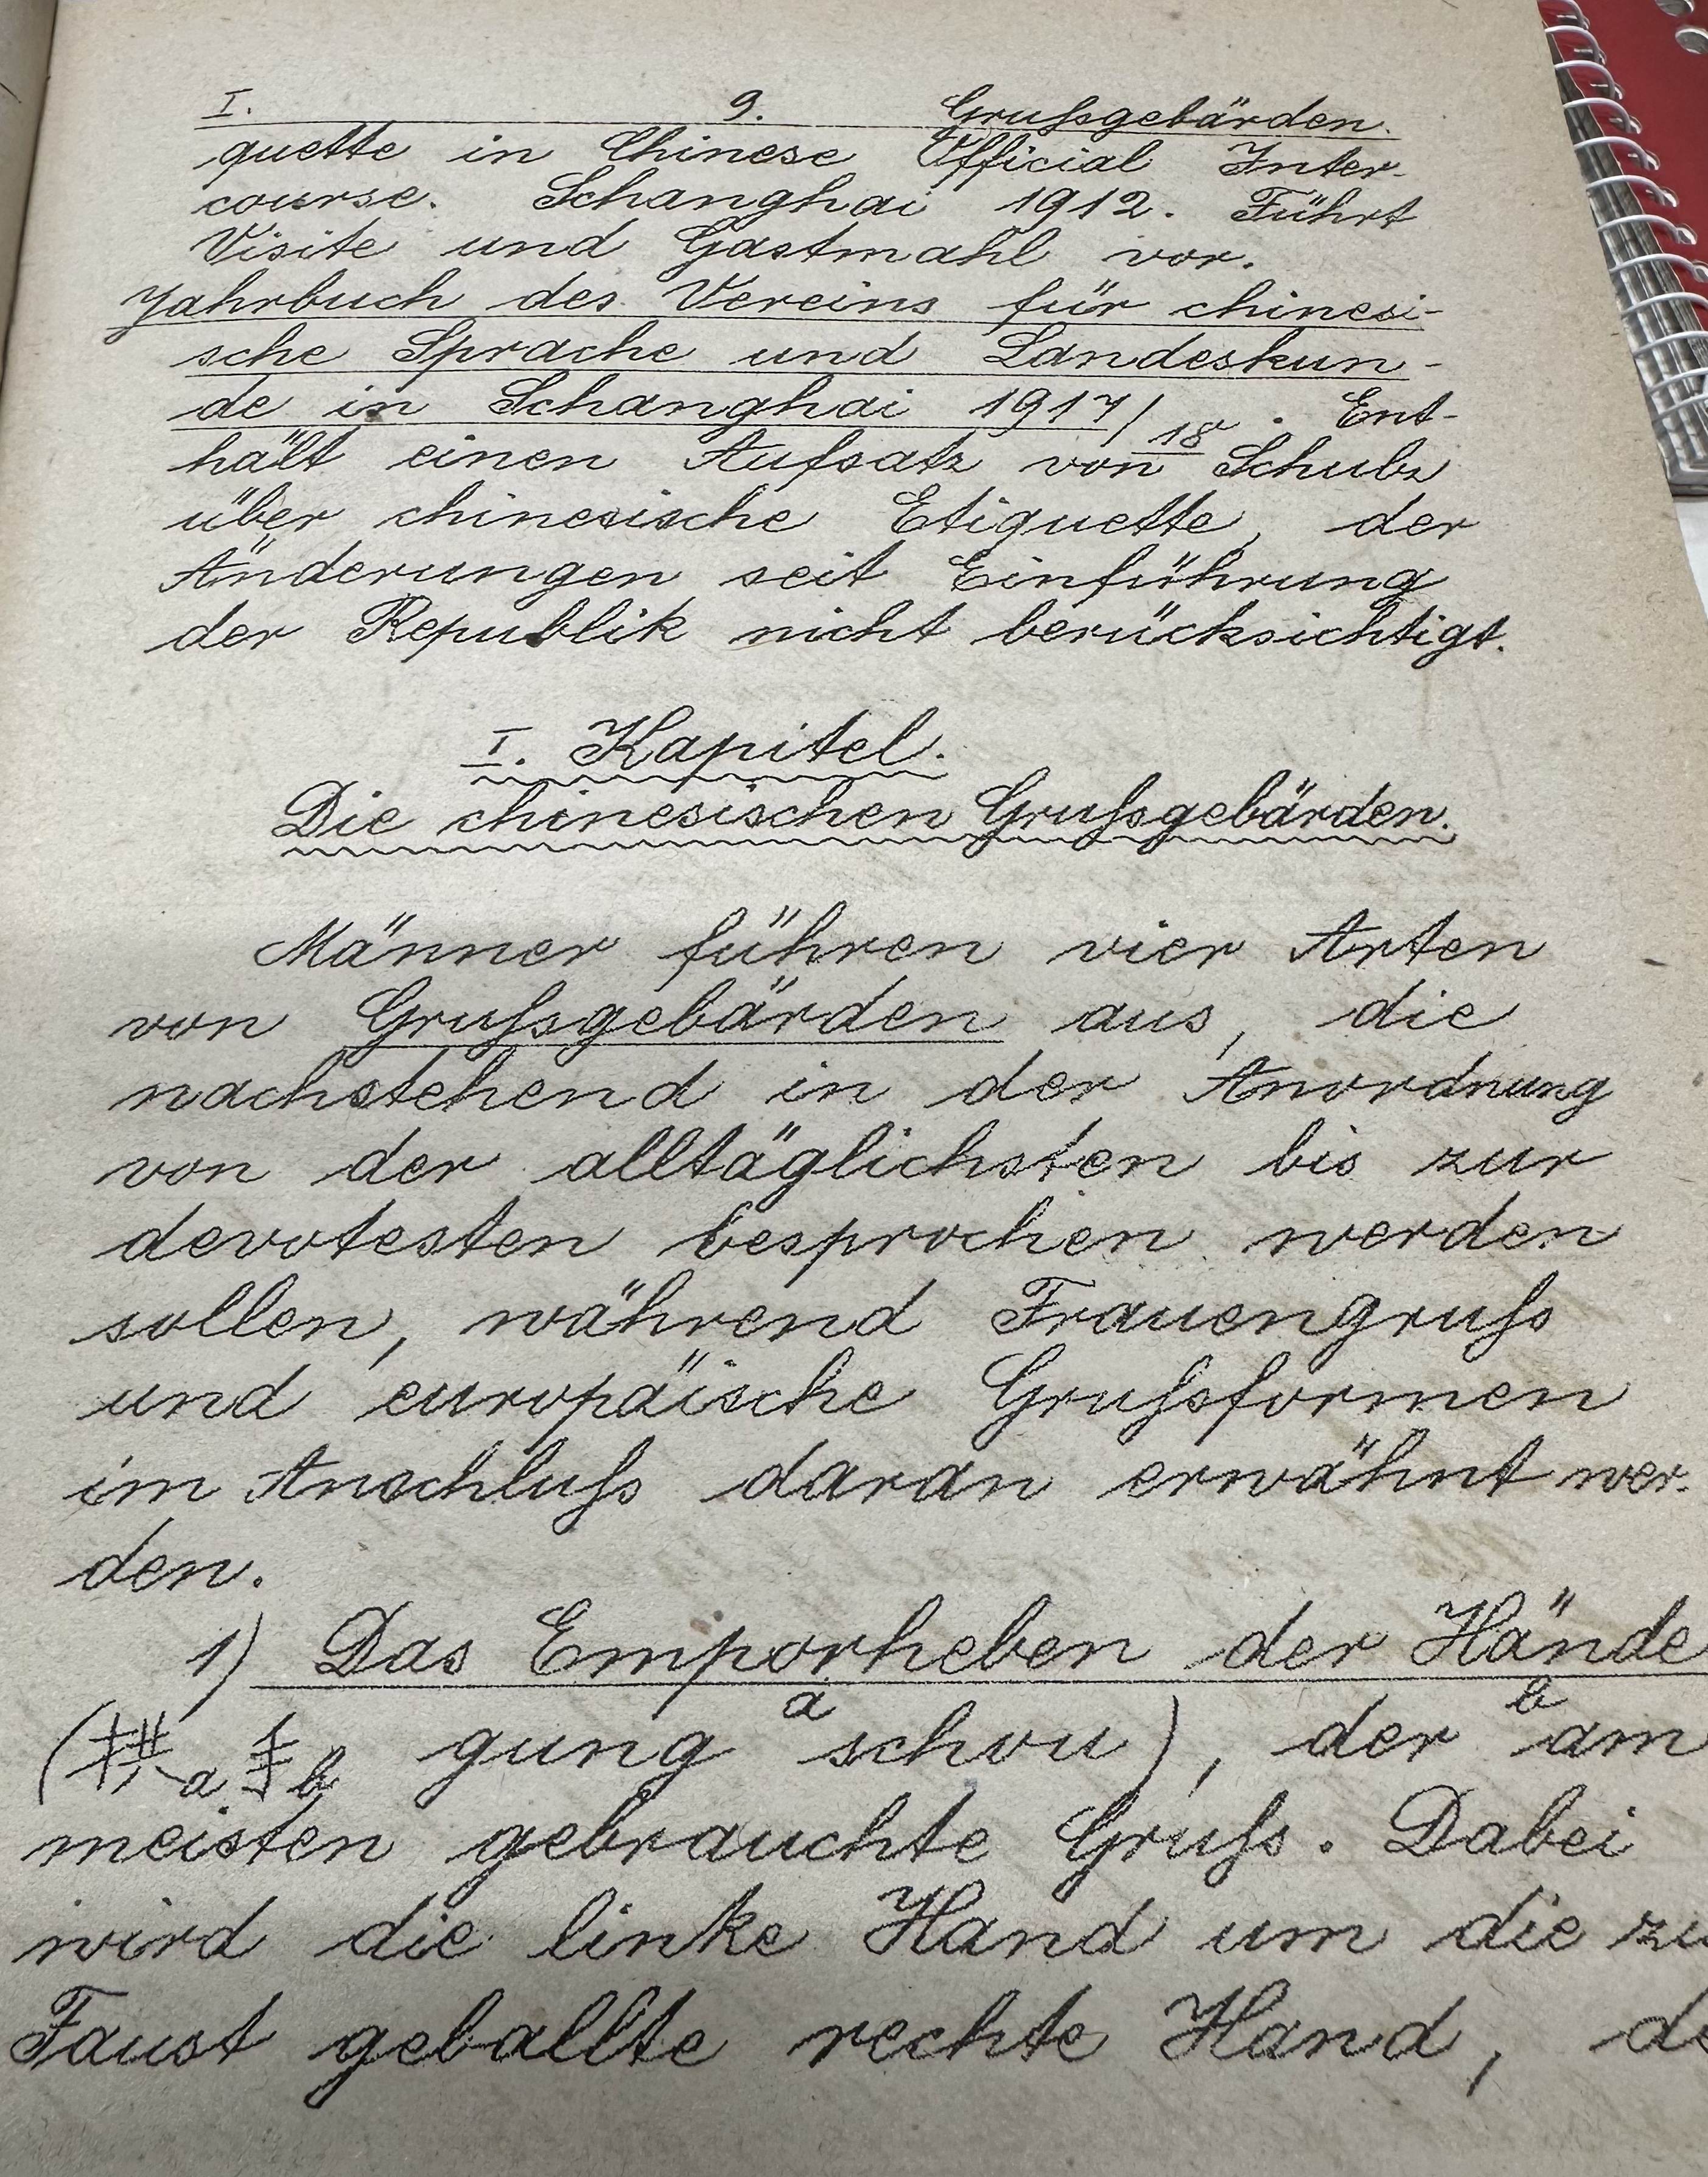 I. 9. Grußgebärden.
quette in Chinese Official Inter-
course. Schanghai 1912. Führt
Visite und Gastmahl vor.
Jahrbuch des Vereins für chinesi-
sche Sprache und Landeskun-
de in Schanghai 1917/18. Ent-
hält einen Aufsatz von Schubz
über chinesische Etiquette, der
Änderungen seit Einführung
der Republik nicht berücksichtigt.
I. Kapitel.
Die chinesischen Grußgebärden.
Männer führen vier Arten
von Grußgebärden aus, die
nachstehend in der Anordnung
von der alltäglichsten bis zur
devotesten besprochen werden
sollen, während Frauengruß
und europäische Grußformen
im Anschluß daran erwähnt wer-
den.
1) Das Emporheben der Hände
(拱a手b gung a schou), der b am
meisten gebrauchte Gruß. Dabei
wird die linke Hand um die zu
Faust geballte rechte Hand, de